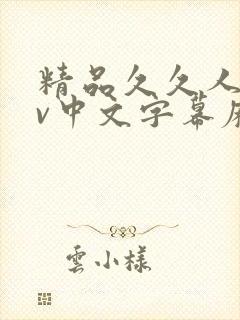 精品久久人
v中文字幕
雲小樣